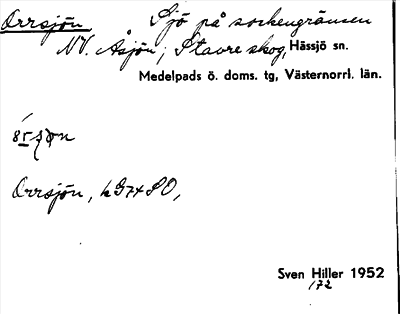 Orrsjön Sjö på sockengränsen
NV. Åsjön; Stavre skog, Hässjö sn.
Medelpads ö. doms. tg, Västernorrl. län.
Orrsjön, k G74 SO,
Sven Hiller 1952
172